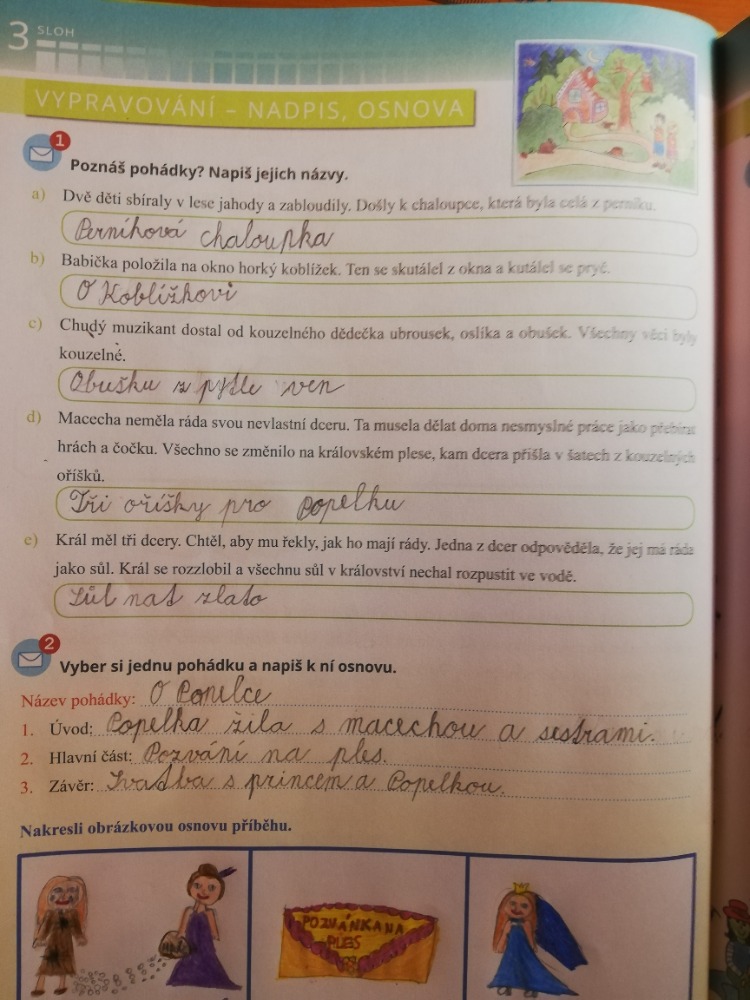 3 SLOH
VYPRAVOVÁNÍ – NADPIS, OSNOVA
1
Poznáš pohádky? Napiš jejich názvy.
a) Dvě děti sbíraly v lese jahody a zabloudily. Došly k chaloupce, která byla celá z perníku.
Perníková chaloupka
b) Babička položila na okno horký koblížek. Ten se skutálel z okna a kutálel se pryč.
O Koblížkovi
c) Chudý muzikant dostal od kouzelného dědečka ubrousek, oslíka a obušek. Všechny věci byly
kouzelné.
Obušku z pytle ven
d) Macecha neměla ráda svou nevlastní dceru. Ta musela dělat doma nesmyslné práce jako přebírat
hrách a čočku. Všechno se změnilo na královském plese, kam dcera přišla v šatech z kouzelných
oříšků.
Tři oříšky pro Popelku
e) Král měl tři dcery. Chtěl, aby mu řekly, jak ho mají rády. Jedna z dcer odpověděla, že jej má ráda
jako sůl. Král se rozzlobil a všechnu sůl v království nechal rozpustit ve vodě.
Sůl nat zlato
2
Vyber si jednu pohádku a napiš k ní osnovu.
Název pohádky: O Popelce
1. Úvod: Popelka žila s macechou a sestrami.
2. Hlavní část: Pozvání na ples.
3. Závěr: Svatba s princem a Popelkou.
Nakresli obrázkovou osnovu příběhu.
POZVÁNKA NA
PLES